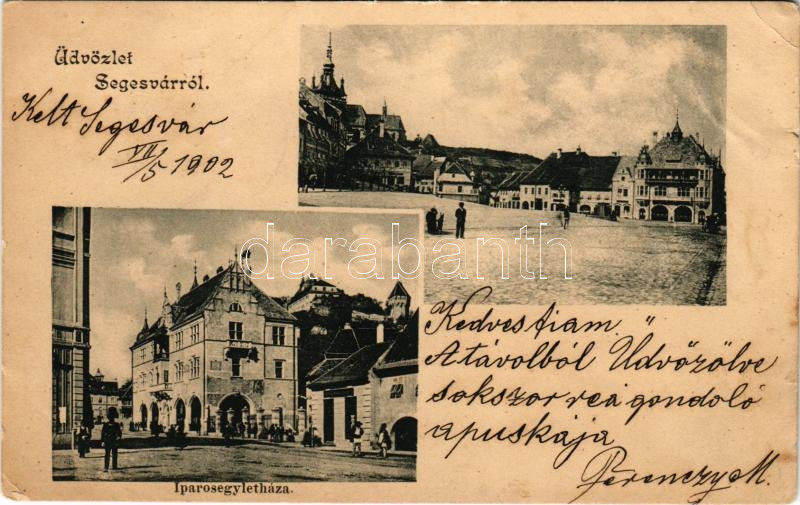 Üdvözlet
Segesvárról.
Kelt Segesvár
VII/5 1902
darabanth
Iparosegyletháza.
Kedves fiam "
A távolból Üdvözölve
sokszor reá gondoló
apuskája
Ferenczy M.